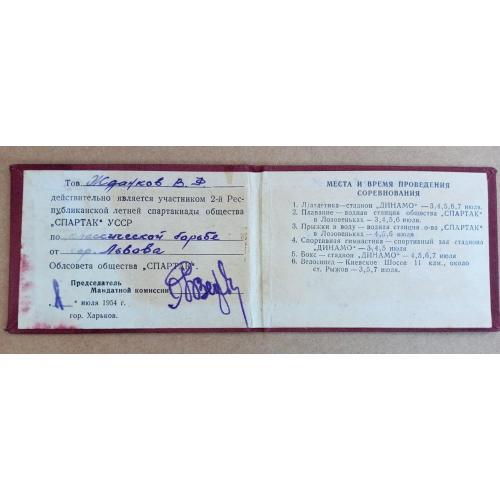 Тов. Жданков В. Ф.
действительно является участником 2-й Рес-
публиканской летней спартакиады общества
„СПАРТАК" УССР
по классической борьбе
от гор. Львова
Облсовета общества „СПАРТАК".
Председатель
Мандатной комиссии
" июля 1954 г.
гор. Харьков.
МЕСТА И ВРЕМЯ ПРОВЕДЕНИЯ
СОРЕВНОВАНИЯ
1. Л/атлетика—стадион „ДИНАМО" — 3,4,5,6,7 июля.
2. Плавание — водная станция общества „СПАРТАК"
в Лозовеньках — 3,4,5,6 июля.
3. Прыжки в воду — водная станция о-ва „СПАРТАК"
в Лозовеньках — 4,5,6 июля.
4. Спортивная гимнастика — спортивный зал стадиона
„ДИНАМО" — 3,4,5 июля
5. Бокс — стадион „ДИНАМО" — 4,5,6,7 июля
6. Велосипед — Киевское Шоссе 11 клм., около
ст. Рыжов — 3,5,7 июля.